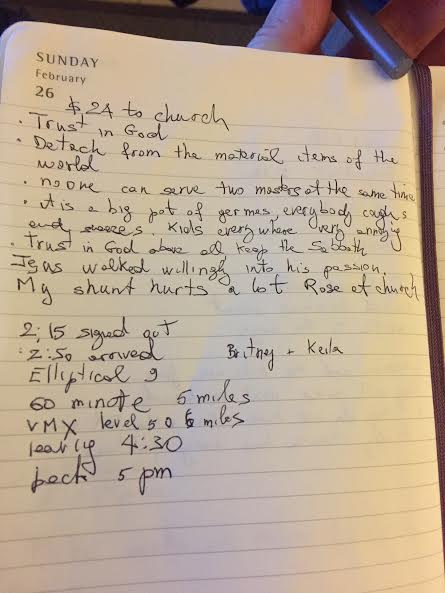 SUNDAY
February
26
$24 to church
• Trust in God
• Detach from the material items of the
world
• no one can serve two masters at the same time
• it is a big pot of germes, everybody caughs
and sneezes. Kids everywhere very annoying
• Trust in God above all keep the Sabbath
Jesus walked willingly into his passion.
My shunt hurts a lot Rose at church
2:15 signed out
2:50 arrived Britney + Keila
Elliptical 9
60 minute 5 miles
VMX level 50 6 miles
leaving 4:30
back 5 pm